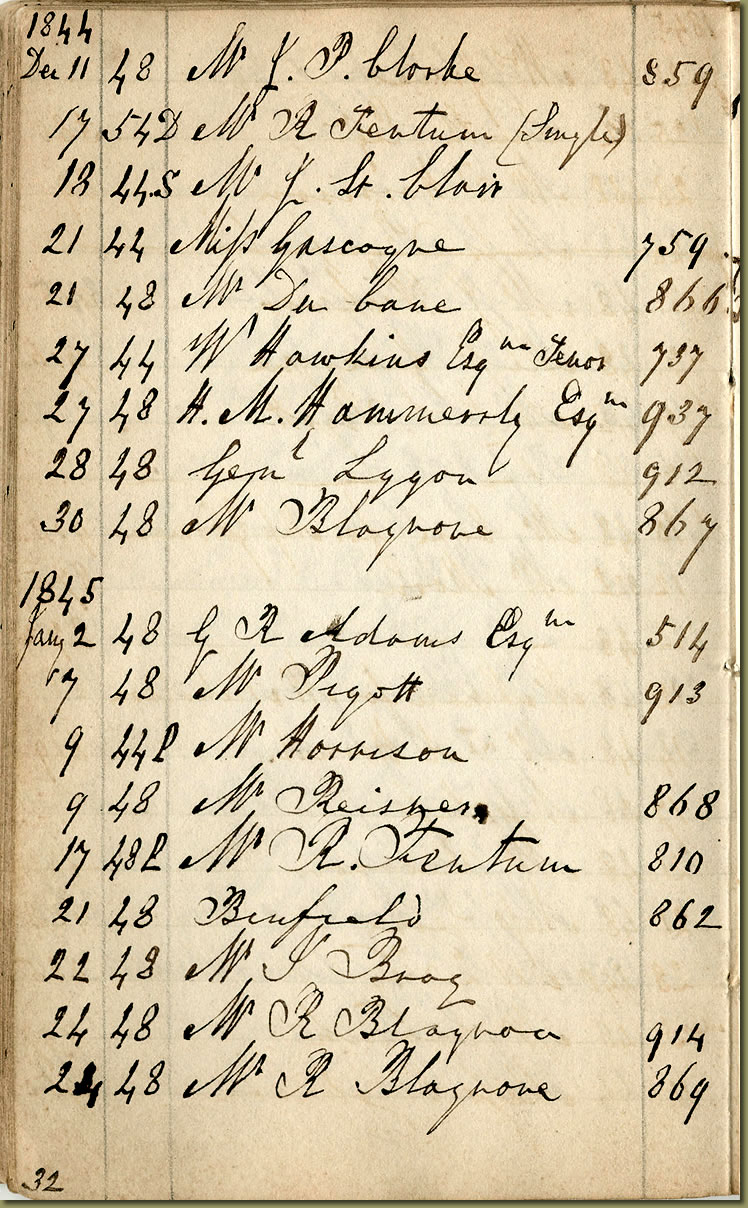 1844
Dec 11 48 Mr J. P. Clarke 859
17 54 D Mr R Fentum (Single)
18 44.S Mr J. St. Clair
21 44 Miss Gascogne 759
21 48 Mr Du Cane 866
27 44 W Hawkins Esqre Tenor 737
27 48 H. M. Hammersly Esqre 937
28 48 Genl Lygon 912
30 48 Mr Blagrove 867
1845
Jany 2 48 G R Adams Esqre 514
7 48 Mr Pigott 913
9 44 P Mr Harrison
9 48 Mr Reisner 868
17 48 P Mr R. Fentum 810
21 48 Binfield 862
22 48 Mr Brag
24 48 Mr R Blagrove 914
24 48 Mr R Blagrove 869
32